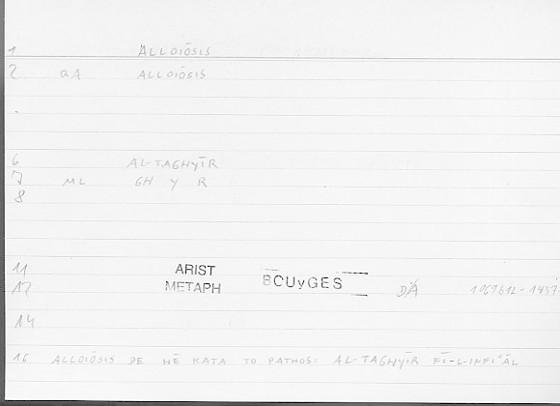 1 ALLOIŌSIS
2 QA ALLOIŌSIS
6 AL-TAGHYĪR
7 ML GH Y R
8
11 ARIST
12 METAPH BOUYGES
14
16 ALLOIŌSIS DE HĒ KATA TO PATHOS: AL-TAGHYĪR FĪ-L-INFIʿĀL